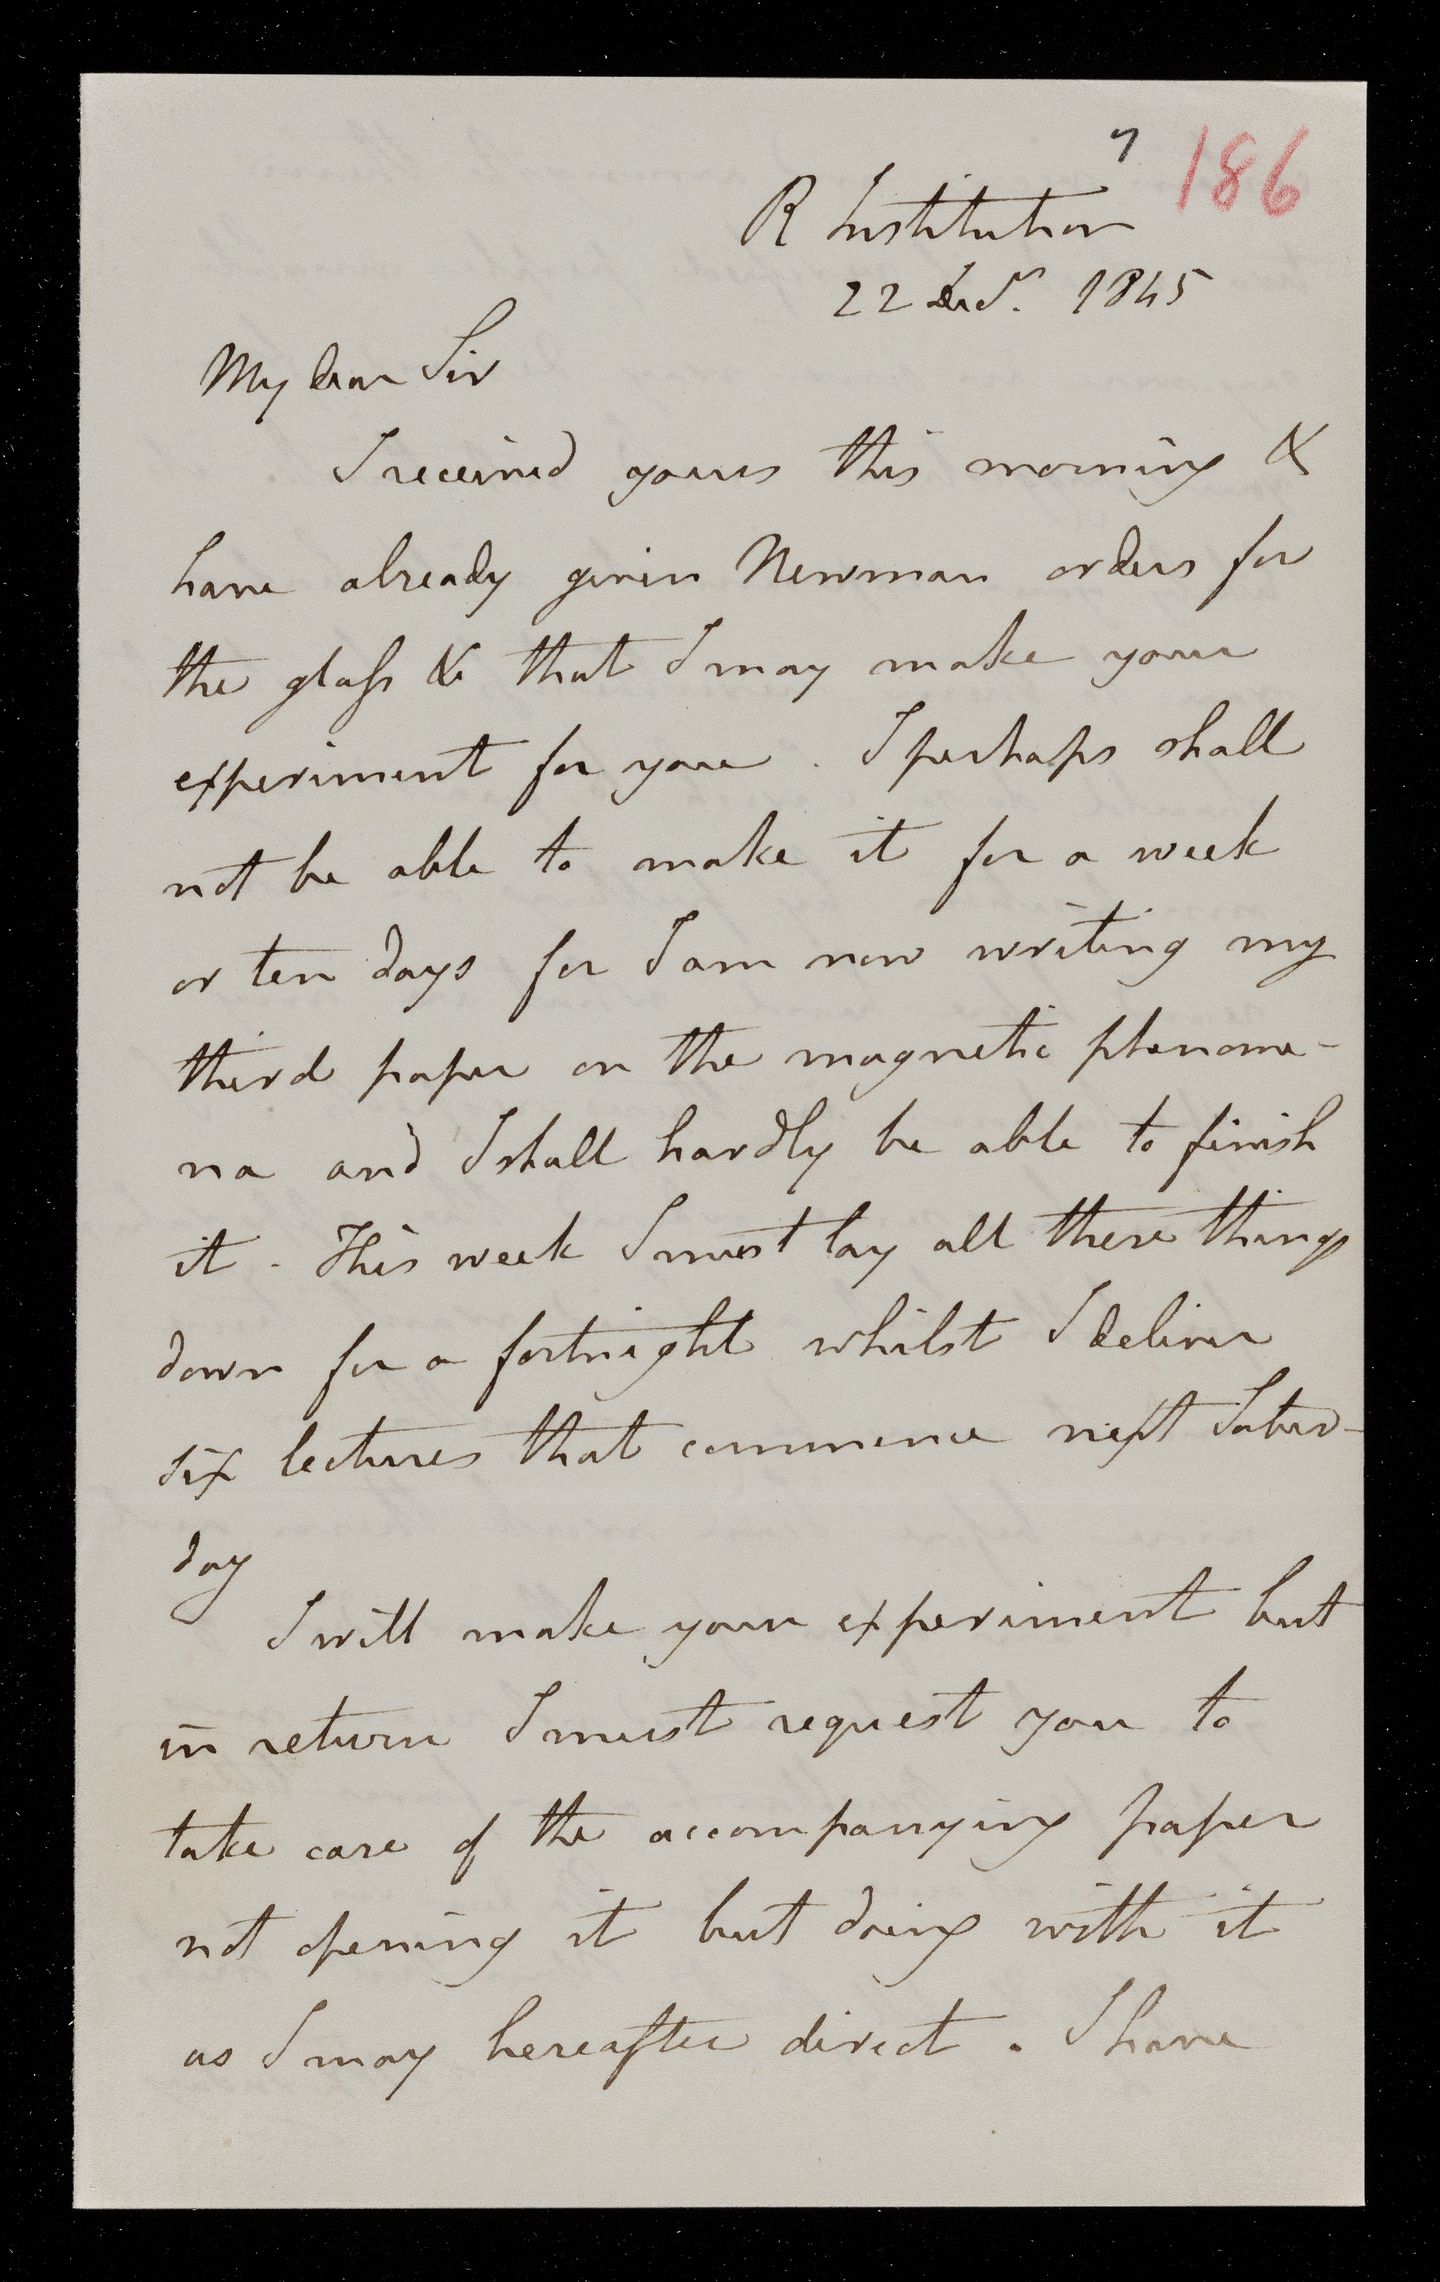 7 186
R Institution
22 Decr. 1845
My dear Sir
I received yours this morning &
have already given Newman orders for
the glass &c that I may make your
experiment for you. I perhaps shall
not be able to make it for a week
or ten days for I am now writing my
third paper on the magnetic phenome-
na and I shall hardly be able to finish
it. This week I must lay all these things
down for a fortnight whilst I deliver
six lectures that commence next Satur-
day
I will make your experiment but
in return I must request you to
take care of the accompanying paper
not opening it but doing with it
as I may hereafter direct. I have